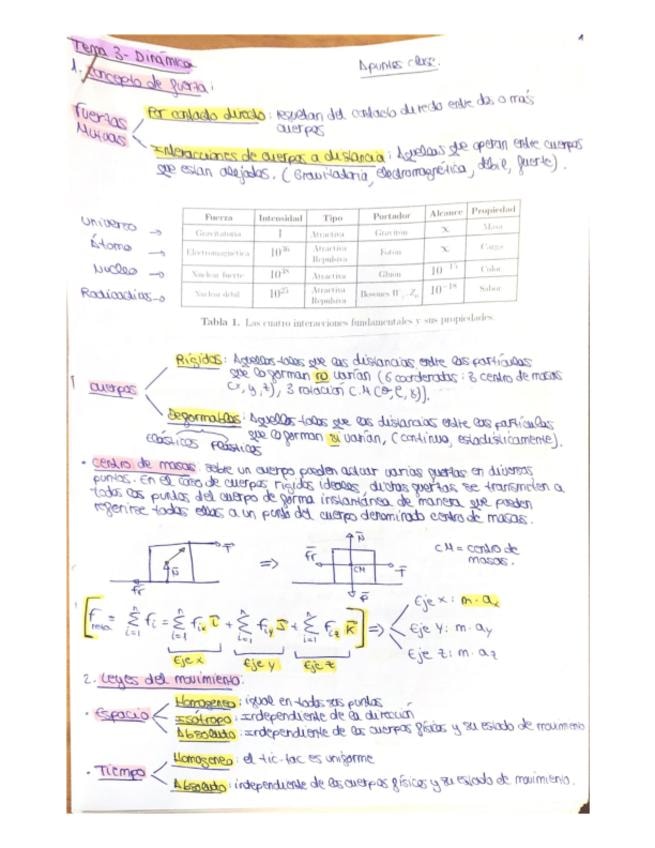 1
Tema 3- Dinámica
Apuntes clase.
1. Concepto de fuerza:
Fuerzas Mutuas
Por contacto directo: resultan del contacto directo entre dos o más
cuerpos
Interacciones de cuerpos a distancia: Aquellas que operan entre cuerpos
que están alejados. (Gravitatoria, electromagnética, débil, fuerte).
Fuerza Intensidad Tipo Portador Alcance Propiedad
Universo → Gravitatoria 1 Atractiva Gravitón Masa
Átomo → Electromagnética 10^36 Atractiva Repulsiva Fotón Carga
Nucleo → Nuclear fuerte 10^38 Atractiva Gluón 10^-15 Color
Radioactivo → Nuclear débil 10^25 Atractiva Repulsiva Bosones 10^-18 Sabor
Tabla 1. Las cuatro interacciones fundamentales y sus propiedades.
Cuerpos
Rígidos: Aquellos tales que las distancias entre las partículas
que lo forman no varían (6 coordenadas: 3 centro de masas
(x, y, z), 3 rotación C.M
Deformables: Aquellos tales que las distancias entre las partículas
que lo forman si varían, (continuo, estadísticamente).
elásticos plásticos
· Centro de masas: sobre un cuerpo pueden actuar varias fuerzas en diversos
puntos. En el caso de cuerpos rígidos ideales, dichas fuerzas se transmiten a
todos los puntos del cuerpo de forma instantánea de manera que pueden
todas ellas a un punto del cuerpo denominado centro de masas.
T
N
Fr
=>
N
Fr
CM
T
P
CM = centro de
masas.
F = Σ fi = Σ fix i + Σ fiy j + Σ fiz k =>
Eje x Eje y Eje z
Eje x: m·ax
Eje y: m·ay
Eje z: m·az
2. Leyes del movimiento:
· Espacio
Homogeneo: igual en todos sus puntos
Isótropo: independiente de la dirección
Absoluto: independiente de los cuerpos físicos y su estado de movimiento
· Tiempo
Homogeneo: el tic-tac es uniforme
Absoluto: independiente de los cuerpos físicos y su estado de movimiento.